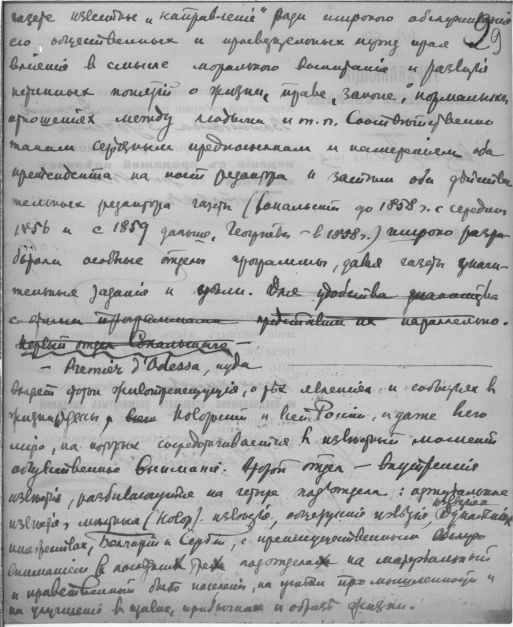 газете известные "направления" ради широкого обслуживания
его общественных и просветительных нужд края
29
влияния в смысле морального воспитания и развития
истинных понятий о жизни, праве, законе, нормальных
отношениях между людьми и т. п. Соответственно
таким серьезным предпосылкам и намерениям оба
претендента на пост редактора и затем оба действи-
тельных редактора газеты (Сокальский до 1858 г. с середины
1856 и с 1859 дальше, Георгиевский – в 1858 г.) широко разра-
ботали особые отделы программы, давая газете значи-
тельные задания и цели. Для удобства знакомства
с этими программами представим их параллельно.
Первый отдел Сокальского –
– Premier d'Odessa, куда
входят статьи животрепещущие, о тех явлениях и событиях в
жизни Одессы, Новороссии и всей России, и даже всего
мира, на которых сосредотачивается в известный момент
общественное внимание. Второй отдел – внутренние
известия, разбивающиеся на четыре подотдела: официальные
известия, местные (Новор.) известия,
Болгарии и Сербии, с преимущественным
вниманием в последних трех подотделах на материальный
и нравственный быт населения, на успехи промышленности и
на улучшения в нравах, привычках и образе жизни.